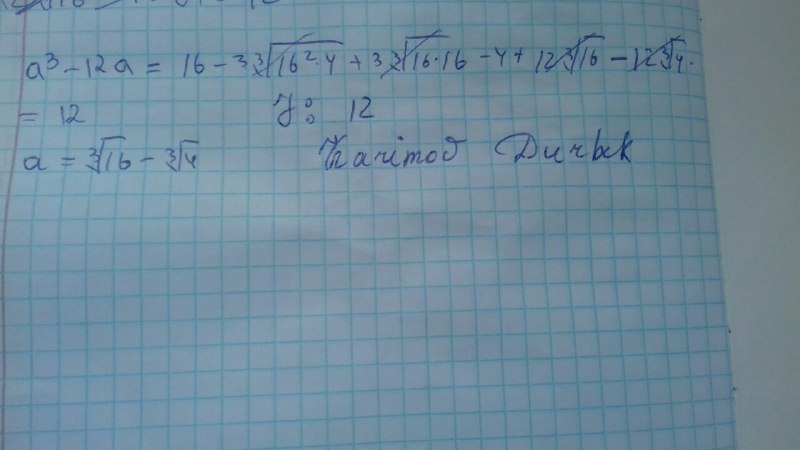 a³ - 12a = 16 - 3∛(16²·4) + 3∛(16·16) - 4 + 12∛16 - 12∛4.
= 12 J: 12
a = ∛16 - ∛4 Karimov Durbek